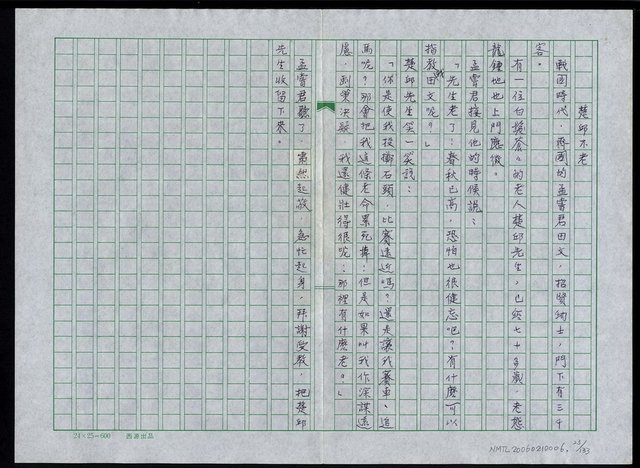 楚邱不老
戰國時代，齊國的孟嘗君田文，招賢納士，門下有三千
客。
有一位白髮蒼々的老人楚邱先生，已經七十多歲，老態
龍鍾地也上門應徵。
孟嘗君接見他的時候說：
「先生老了：春秋已高，恐怕也很健忘吧？有什麼可以
指教我田文呢？」
楚邱先生笑一笑說：
「你是使我投擲石頭，比賽遠近嗎？還是讓我賽車、追
馬呢？那會把我這條老命累死掉！但是如果叫我作深謀遠
慮，剖策決疑，我還健壯得很呢：那裡有什麼老。」
孟嘗君聽了，肅然起敬，急忙起身，拜謝受教，把楚邱
先生收留下來。
24×25=600 西源出品
NMTL20060210006, 23/133